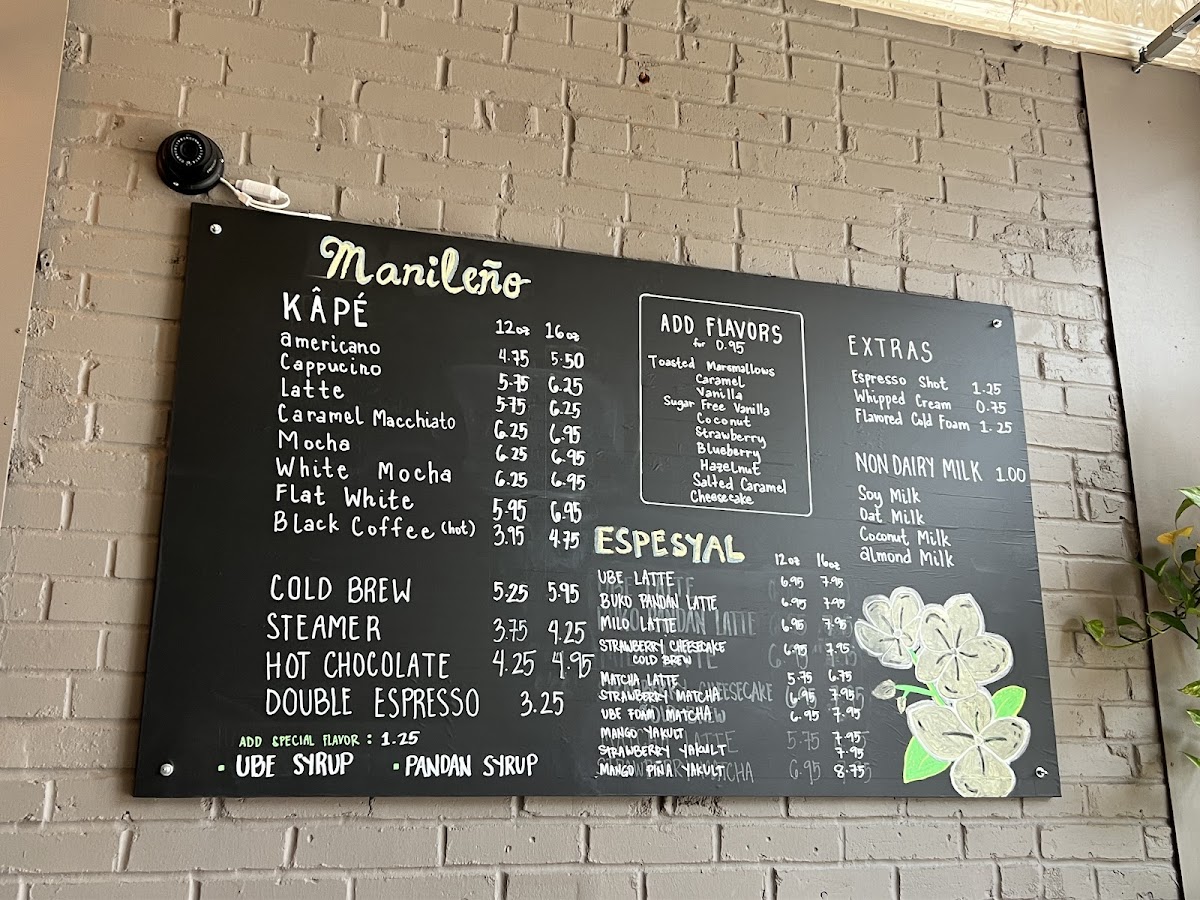 Manileño
KÂPÉ
12oz 16oz
americano 4.75 5.50
Cappucino 5.75 6.25
Latte 5.75 6.25
Caramel Macchiato 6.25 6.95
Mocha 6.25 6.95
White Mocha 6.25 6.95
Flat White 5.95 6.95
Black Coffee (hot) 3.95 4.75
COLD BREW 5.25 5.95
STEAMER 3.75 4.25
HOT CHOCOLATE 4.25 4.95
DOUBLE ESPRESSO 3.25
ADD SPECIAL FLAVOR : 1.25
• UBE SYRUP • PANDAN SYRUP
ADD FLAVORS
for 0.95
Toasted Marsmallows
Caramel
Vanilla
Sugar Free Vanilla
Coconut
Strawberry
Blueberry
Hazelnut
Salted Caramel
Cheesecake
ESPESYAL
12oz 16oz
UBE LATTE 6.95 7.95
BUKO PANDAN LATTE 6.95 7.95
MILO LATTE 6.95 7.95
STRAWBERRY CHEESECAKE 6.95 7.95
COLD BREW
MATCHA LATTE 5.75 6.75
STRAWBERRY MATCHA 6.95 7.95
UBE FOAM MATCHA 6.95 7.95
MANGO YAKULT 7.95
STRAWBERRY YAKULT 7.95
MANGO PIÑA YAKULT 8.75
EXTRAS
Espresso Shot 1.25
Whipped Cream 0.75
Flavored Cold Foam 1.25
NON DAIRY MILK 1.00
Soy Milk
Oat Milk
Coconut Milk
almond Milk